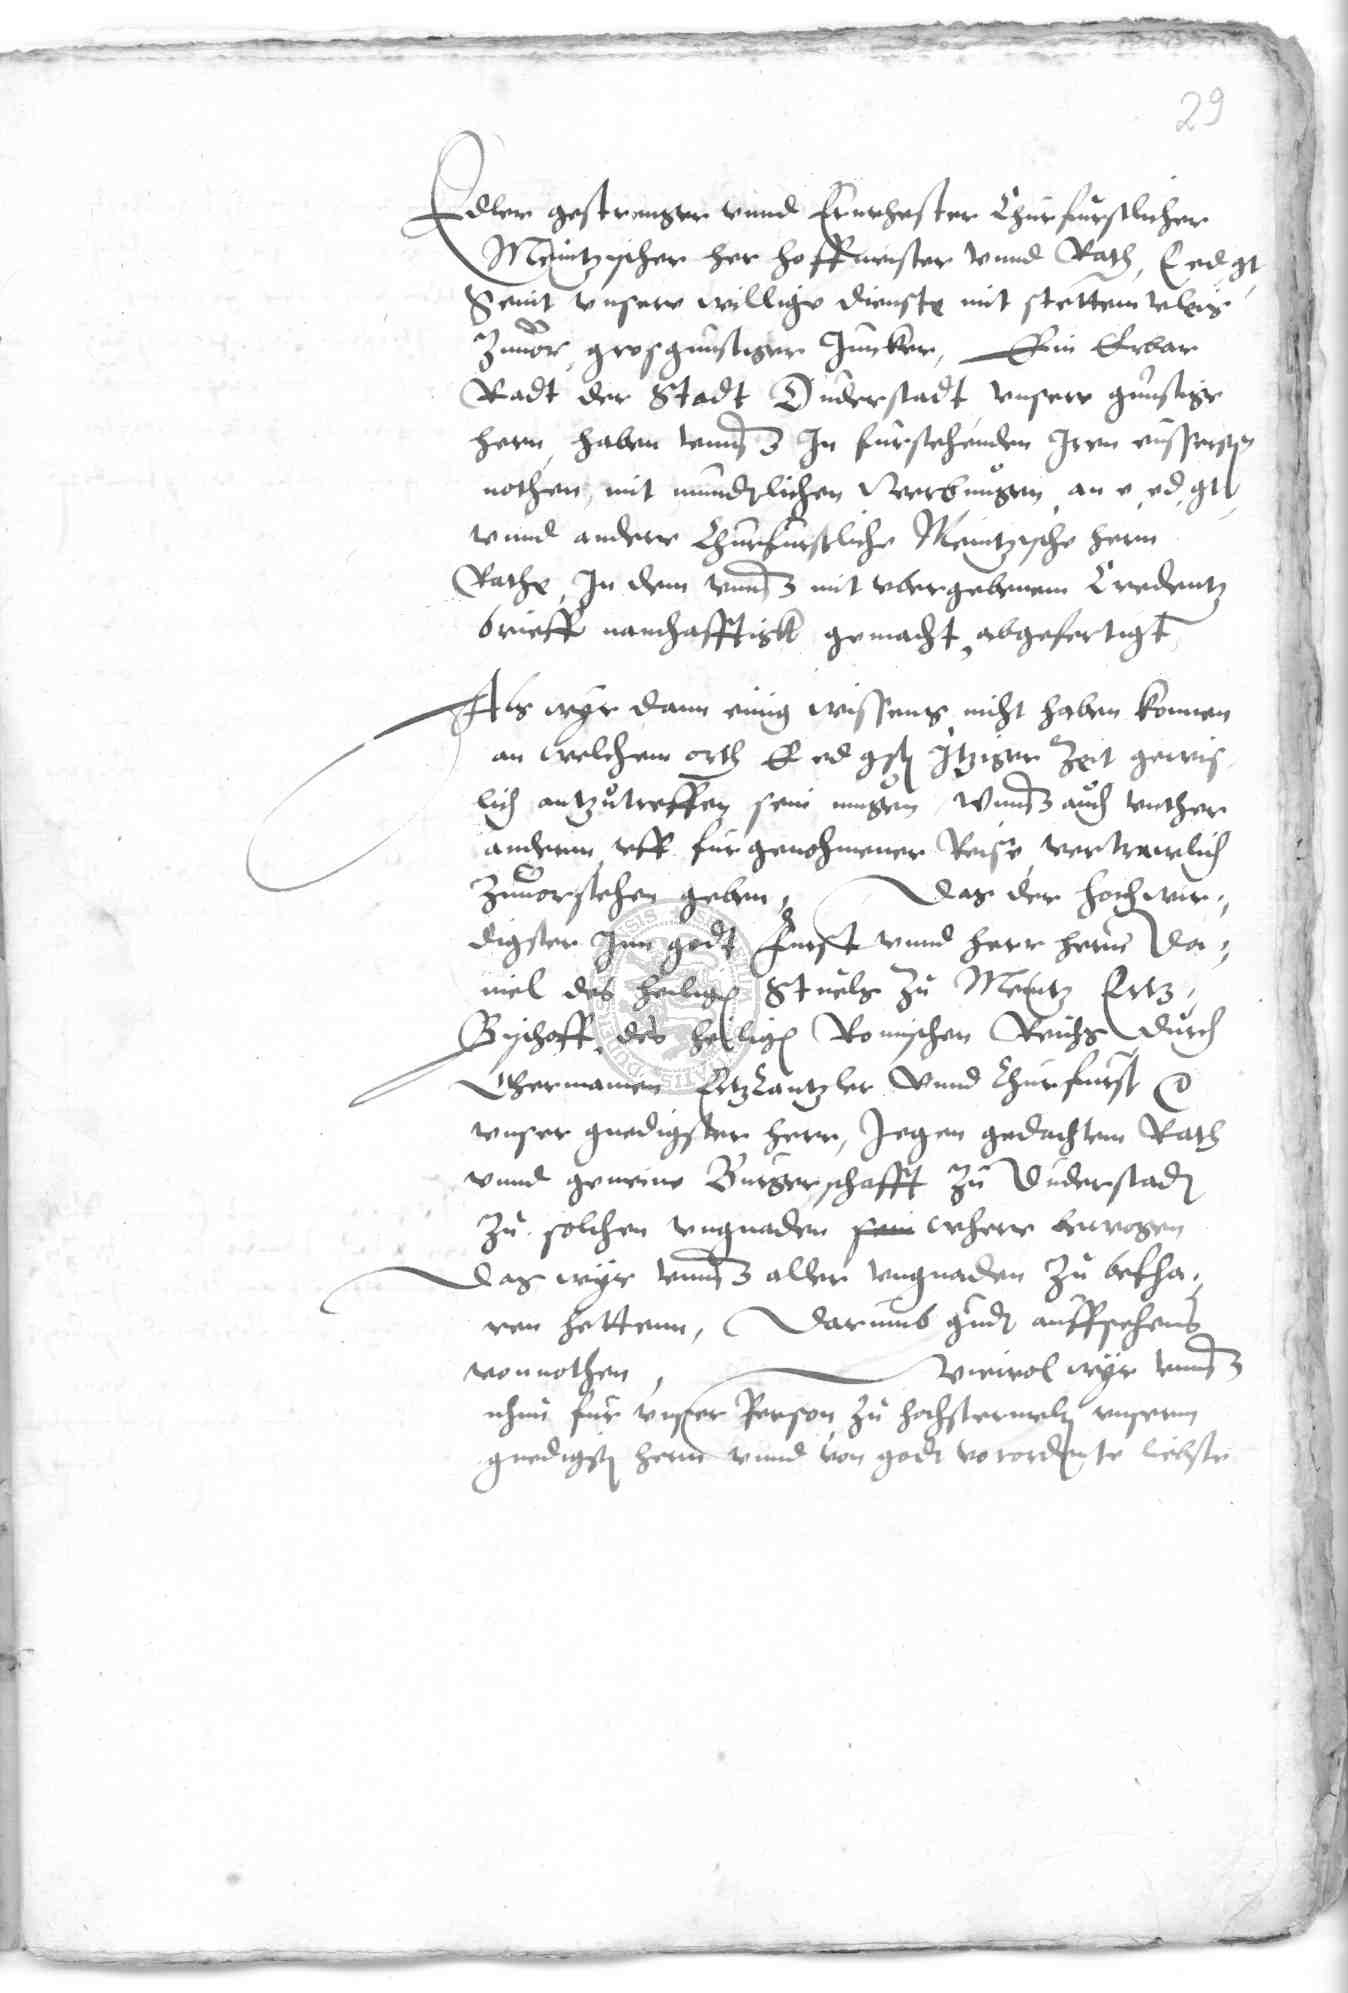 29
Edler gestrenger vnnd Ernvhester Churfurstlicher
Meintzischer her hoffmeister vnnd Rath, E ed gt
Seint vnsere willige dienste mit stettem vleis
Zuuor, grosgunstiger Juncker, Ein Erbar
Radt der Stadt Duderstadt vnsere gunstige
hern, haben vnns In furstehenden Iren eussersten
nothen, mit mundtlichen Werbungen an e ed gt
vnnd andere Churfurstliche Meintzische hern
Rathe, In dem vnns mit vbergebenem Credentz
brieff namhafftigk gemacht, abgefertigt
Als wyr dann einig wissens nicht haben konnen
an welchem orth E ed gst Itziger Zeit gewis
lich antzutreffen sein mugen, Vnns auch vnther
anderm vff furgenohmener Reise vertrawlich
Zuuorstehen geben, Das der hochwir-
digster Inn godt Furst vnnd herr hern Da-
niel des heiligen Stuels Zu Meintz Ertz-
Bischoff, des heiligen Romischen Reichs Durch
Ghermanien ErtzCantzler Vnnd Churfurst
vnser gnedigster herr, Jegen gedachtem Rath
vnnd gemeine Burgerschafft Zu Duderstadt
Zu solchen vngnaden sein where bewogen
Das wyr vnns aller vngnaden Zu befha-
ren hettenn, Darumb gudt auffsehens
vonnothen, Wiewol wyr vnns
nhun fur vnser Person Zu hochstermelten vnserm
gnedigsten hern vnnd von godt verordente liebste